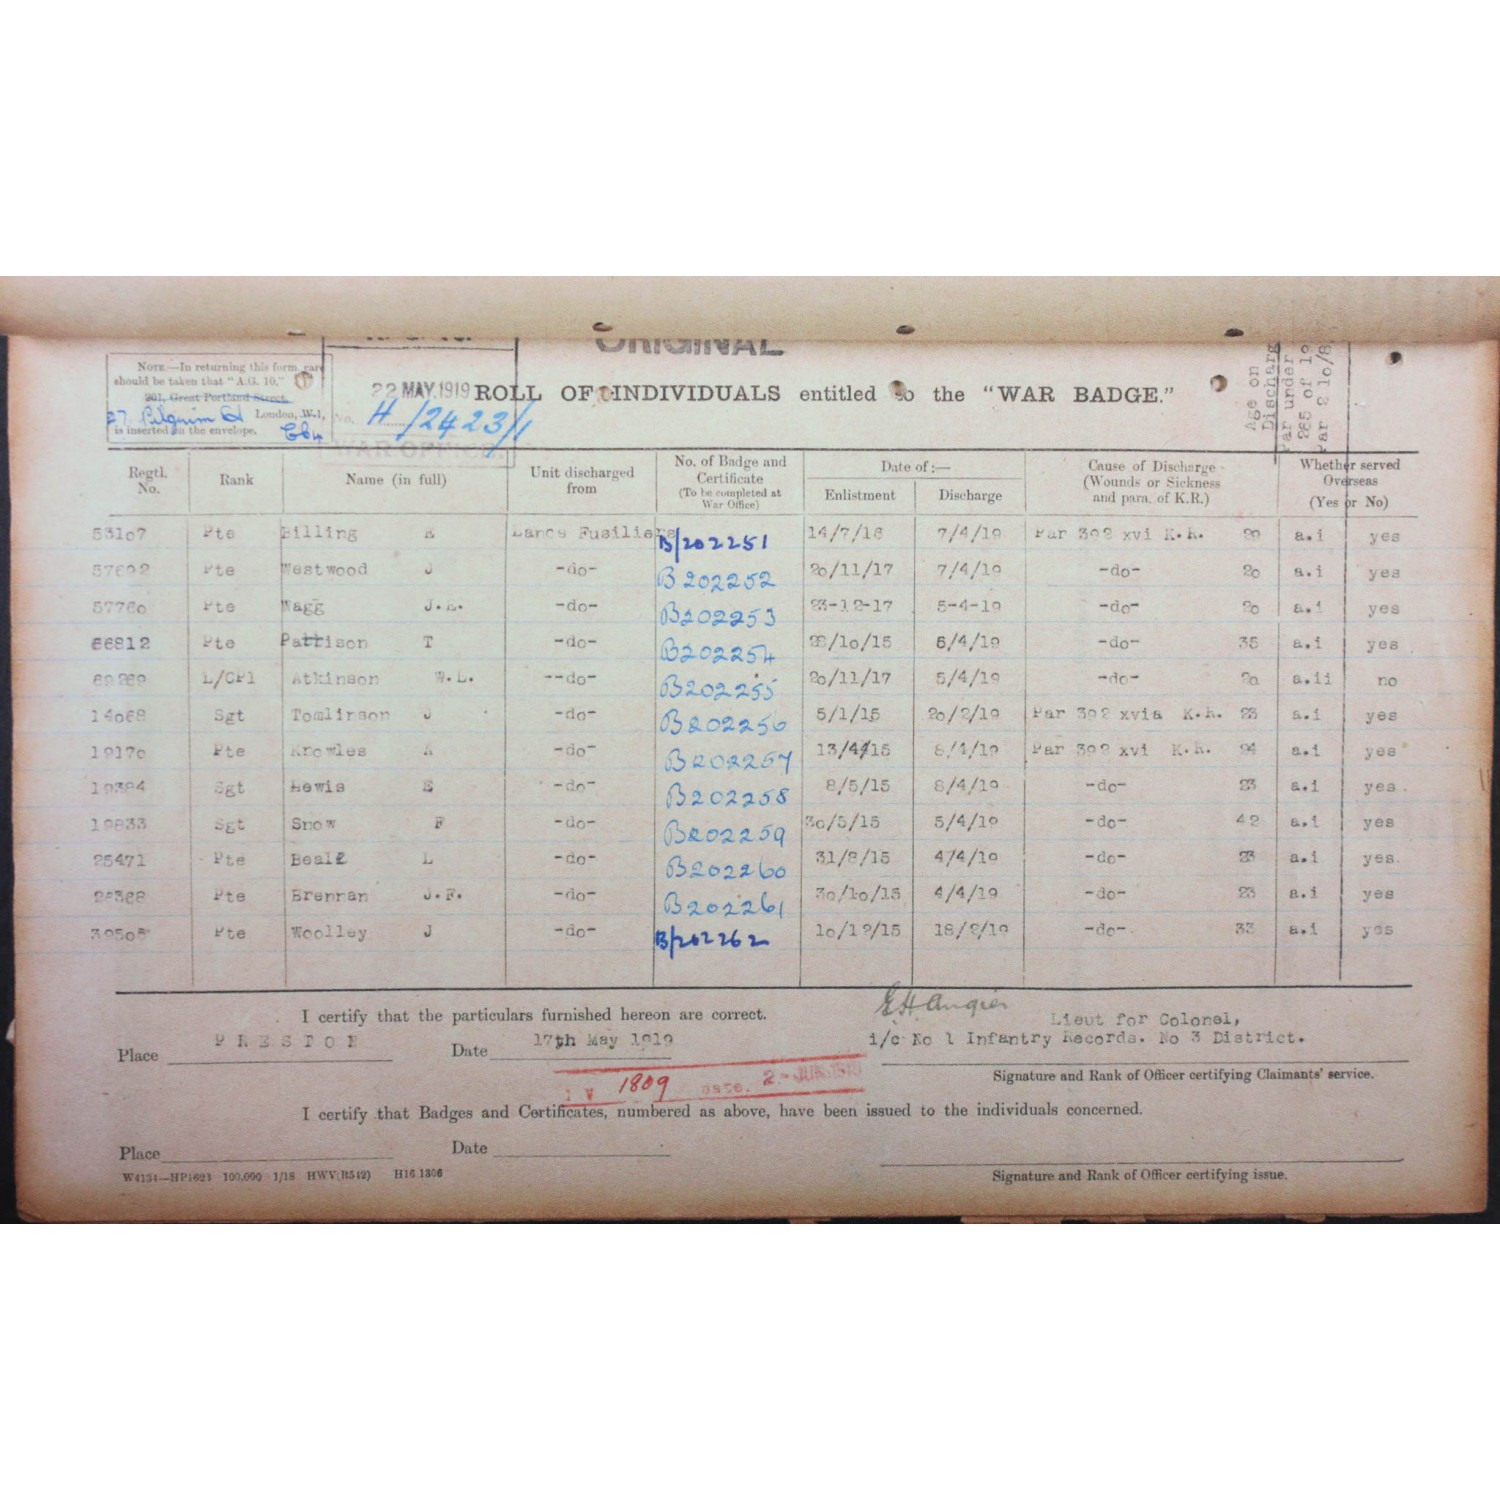 ORIGINAL
NOTE.—In returning this form care
should be taken that "A.G. 10,"
201, Great Portland Street,
27. Pilgrim St London, W.1,
is inserted on the envelope. EC4
22 MAY.1919
No. H/2423/1
WAR OFFICE
ROLL OF INDIVIDUALS entitled to the "WAR BADGE."
Age on
Discharg
Par under
265 of 19
Par 2 10/8
Regtl. No. Rank Name (in full) Unit discharged from No. of Badge and Certificate (To be completed at War Office) Date of :— Enlistment Discharge Cause of Discharge (Wounds or Sickness and para. of K.R.) Whether served Overseas (Yes or No)
53107 Pte Billing Lancs Fusiliers B/202251 14/7/16 7/4/19 Par 392 xvi K.R. a.i yes
57692 Pte Westwood J -do- B202252 20/11/17 7/4/19 -do- 20 a.i yes
57760 Pte Wagg J.E. -do- B202253 23-12-17 5-4-19 -do- 20 a.i yes
66812 Pte Pattison T -do- B202254 6/4/19 -do- 35 a.i yes
L/CPl Atkinson W.L. --do- B202255 20/11/17 5/4/19 -do- 20 a.ii no
14068 Sgt Tomlinson J -do- B202256 5/1/15 20/2/19 Par 392 xvia K.R. 23 a.i yes
19170 Pte Knowles -do- B202257 13/4/15 8/4/19 Par 392 xvi K.R. 24 a.i yes
19384 Sgt Lewis E -do- B202258 8/5/15 8/4/19 -do- 23 a.i yes.
19833 Sgt Snow F -do- B202259 30/5/15 5/4/19 -do- 42 a.i yes
25471 Pte L -do- B202260 31/8/15 4/4/19 -do- 23 a.i yes.
Pte Brennan J.F. -do- B202261 30/10/15 4/4/19 -do- 23 a.i yes
39505 Pte Woolley J -do- B/202262 10/12/15 18/2/19 -do- 33 a.i yes
I certify that the particulars furnished hereon are correct.
EH Angier
Lieut for Colonel,
Place PRESTON Date 17th May 1919 i/c No 1 Infantry Records. No 3 District.
Signature and Rank of Officer certifying Claimants' service.
1809 Date. 2-JUN.1919
I certify that Badges and Certificates, numbered as above, have been issued to the individuals concerned.
Place Date
W4134—HP1623 100,000 1/18 HWV(R542) H16 1306
Signature and Rank of Officer certifying issue.